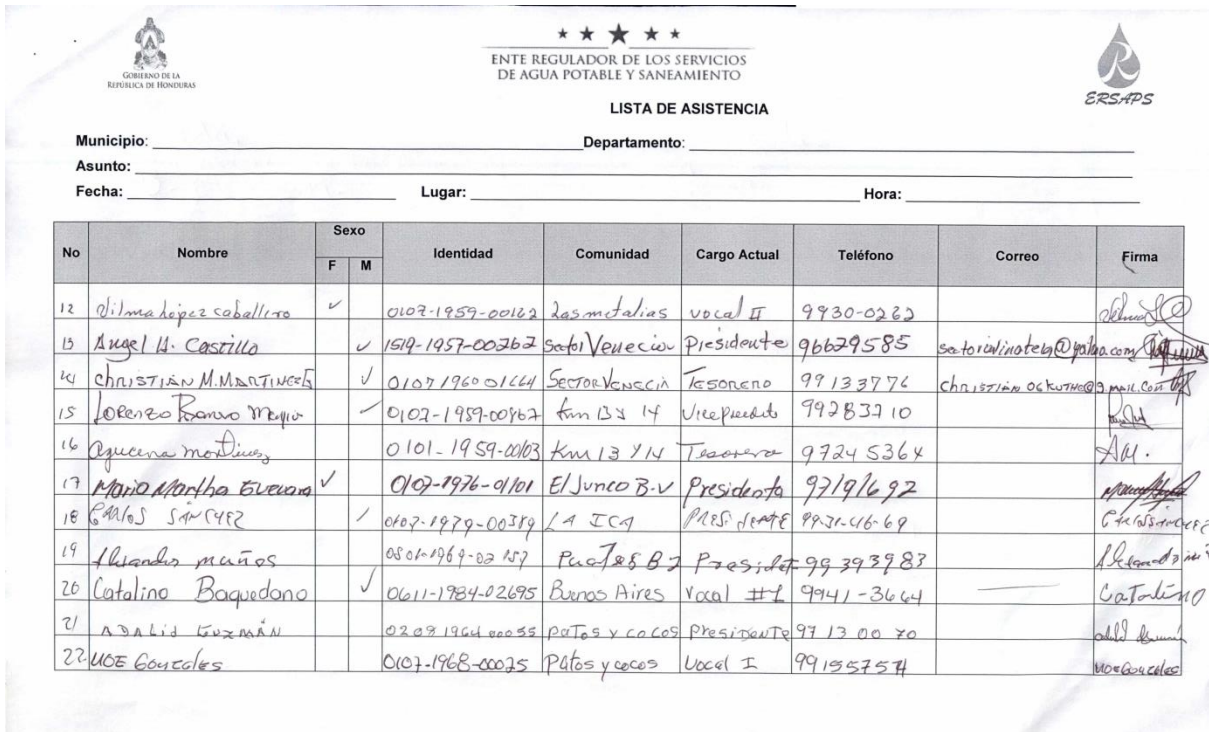 GOBIERNO DE LA
REPÚBLICA DE HONDURAS
ENTE REGULADOR DE LOS SERVICIOS
DE AGUA POTABLE Y SANEAMIENTO
ERSAPS
LISTA DE ASISTENCIA
Municipio: Departamento:
Asunto:
Fecha: Lugar: Hora:
No Nombre Sexo F M Identidad Comunidad Cargo Actual Teléfono Correo Firma
12 Vilma López caballero ✓ 0107-1959-00162 Las metalias vocal II 9930-0262
13 Angel H. Castillo ✓ 1519-1957-00262 Sector Venecia Presidente 96629585
14 CHRISTIAN M. MARTINEZ ✓ 0107 1960 01664 SECTOR VENECIA TESORERO 99133776
15 Lorenzo ✓ 0107-1959-00967 Km 13 y 14 99283210
16 azucena 0101-1959-00103 Km 13 y 14 Tesorera 9724 5364 AM.
17 Maria Martha Guevara ✓ 0107-1976-01101 El Junco B.V Presidenta 97191692
18 CARLOS SANCHEZ 0107-1979-00389 LA ICA PRESIDENTE 99-31-46-69 CARLOS SANCHEZ
19 muños 0801-1969-02157 99 393983
20 Catalino Baquedano ✓ 0611-1984-02695 Buenos Aires Vocal #1 9941-3664 Catalino
21 ADALID GUZMÁN 0209 1964 00055 patos y cocos PRESIDENTE 97 13 00 70
22 NOE Gonzales 0107-1968-00025 Patos y cocos Vocal I 99155754 NOE Gonzales